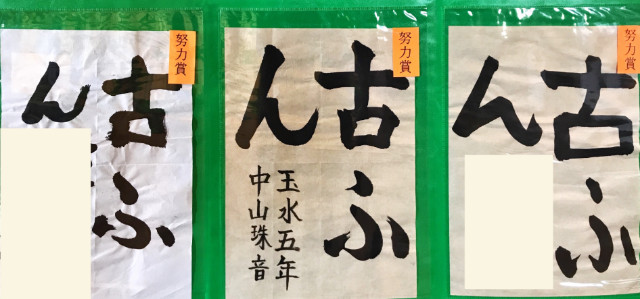 努力賞
古ふ
ん
努力賞
古ふ
ん
玉水五年
中山珠音
努力賞
古ふ
ん